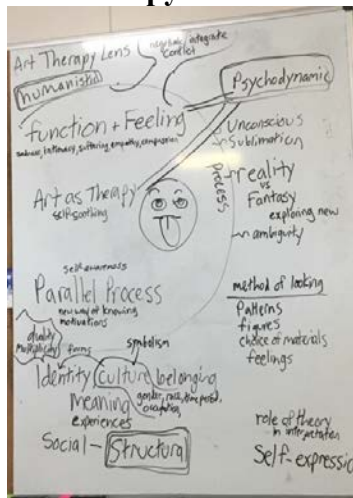 Art Therapy Lens
negotiate/integrate
conflict
humanistic
Psychodynamic
function + Feeling
sadness, intimacy, suffering, empathy, compassion
Unconscious
Sublimation
process
reality
vs
Fantasy
exploring new
ambiguity
Art as Therapy
self-soothing
self awareness
Parallel Process
new way of knowing
motivations
method of looking
Patterns
figures
choice of materials
feelings
duality
multiplicity
forms
symbolism
Identity culture belonging
Meaning
gender, race, time period,
occupation
experiences
Social - Structural
role of theory
in interpretation
Self-expressio